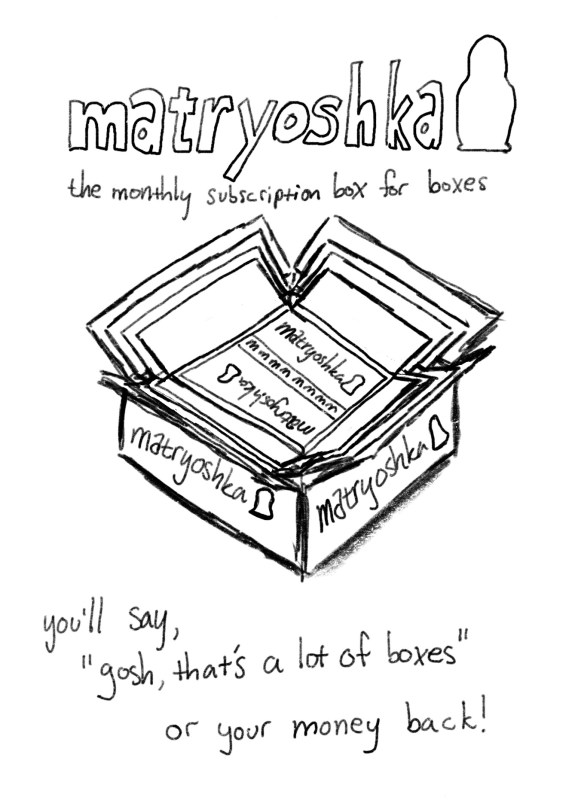 matryoshka
the monthly subscription box for boxes
matryoshka
m m m m m m m m
matryoshka
matryoshka
matryoshka
you'll say,
"gosh, that's a lot of boxes"
or your money back!